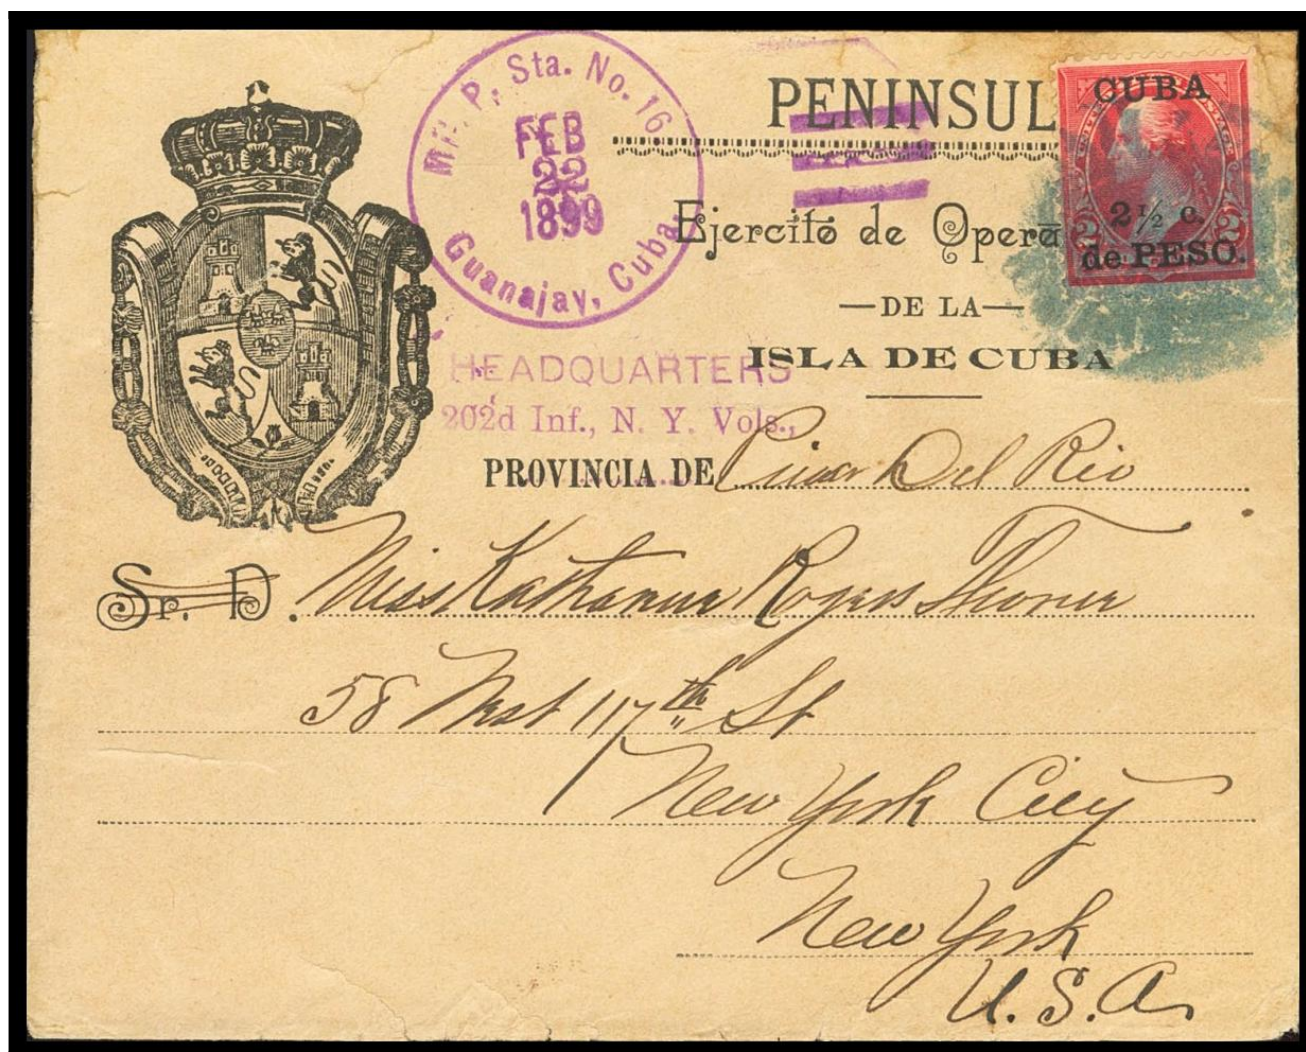 Mil. P. Sta. No. 16
FEB
22
1899
Guanajay, Cuba.
PENINSUL
Ejercito de Opera
—DE LA—
ISLA DE CUBA
CUBA
2½ c.
de PESO.
2 2
HEADQUARTERS
202'd Inf., N. Y. Vols.,
PROVINCIA DE Pinar Del Rio
Sr. D. Miss Katharine Rogers
58 West 117th St
New York City
New York
U. S. A.